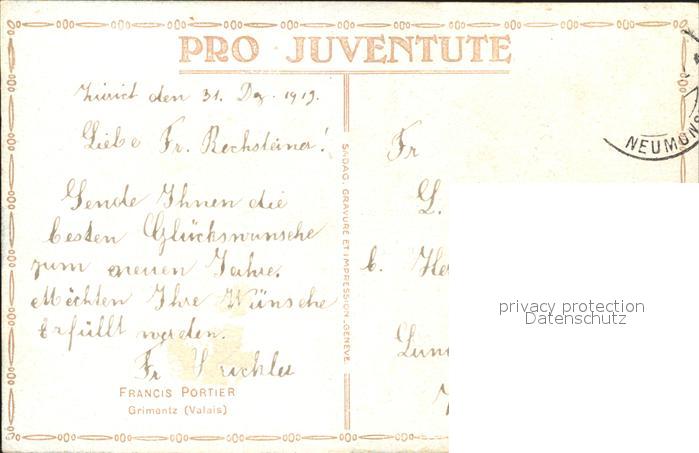 PRO JUVENTUTE
Zürich den 31. Dez. 1919.
Liebe Fr. Rechsteiner!
Sende Ihnen die
besten Glückswunsche
zum neuen Jahre.
Möchten Ihre Wünsche
Erfüllt werden.
Fr
FRANCIS PORTIER
Grimentz (Valais)
SADAG, GRAVURE ET IMPRESSION, GENÈVE
NEUMÜNS
Fr
b.
privacy protection
Datenschutz